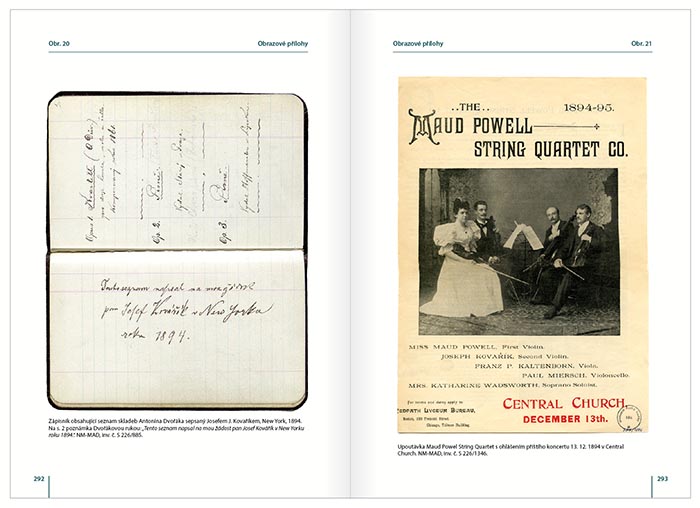 Obr. 20
Obrazové přílohy
Opus 1. Kvartett (A Dur)
Op. 2. Písně
Op. 3. Písně
Tento seznam napsal na mou žádost
pan Josef Kovářík v New Yorku
roku 1894.
Zápisník obsahující seznam skladeb Antonína Dvořáka sepsaný Josefem J. Kovaříkem, New York, 1894.
Na s. 2 poznámka Dvořákovou rukou: „Tento seznam napsal na mou žádost pan Josef Kovářík v New Yorku
roku 1894.“ NM-MAD, inv. č. S 226/885.
292
Obrazové přílohy
Obr. 21
..THE.. 1894-95.
MAUD POWELL
STRING QUARTET CO.
MISS MAUD POWELL, First Violin.
JOSEPH KOVAŘÍK, Second Violin.
FRANZ P. KALTENBORN, Viola.
PAUL MIERSCH, Violoncello.
MRS. KATHARINE WADSWORTH, Soprano Soloist.
For terms and dates apply to
REDPATH LYCEUM BUREAU,
CENTRAL CHURCH,
DECEMBER 13th.
Upoutávka Maud Powel String Quartet s ohlášením příštího koncertu 13. 12. 1894 v Central
Church. NM-MAD, inv. č. S 226/1346.
293